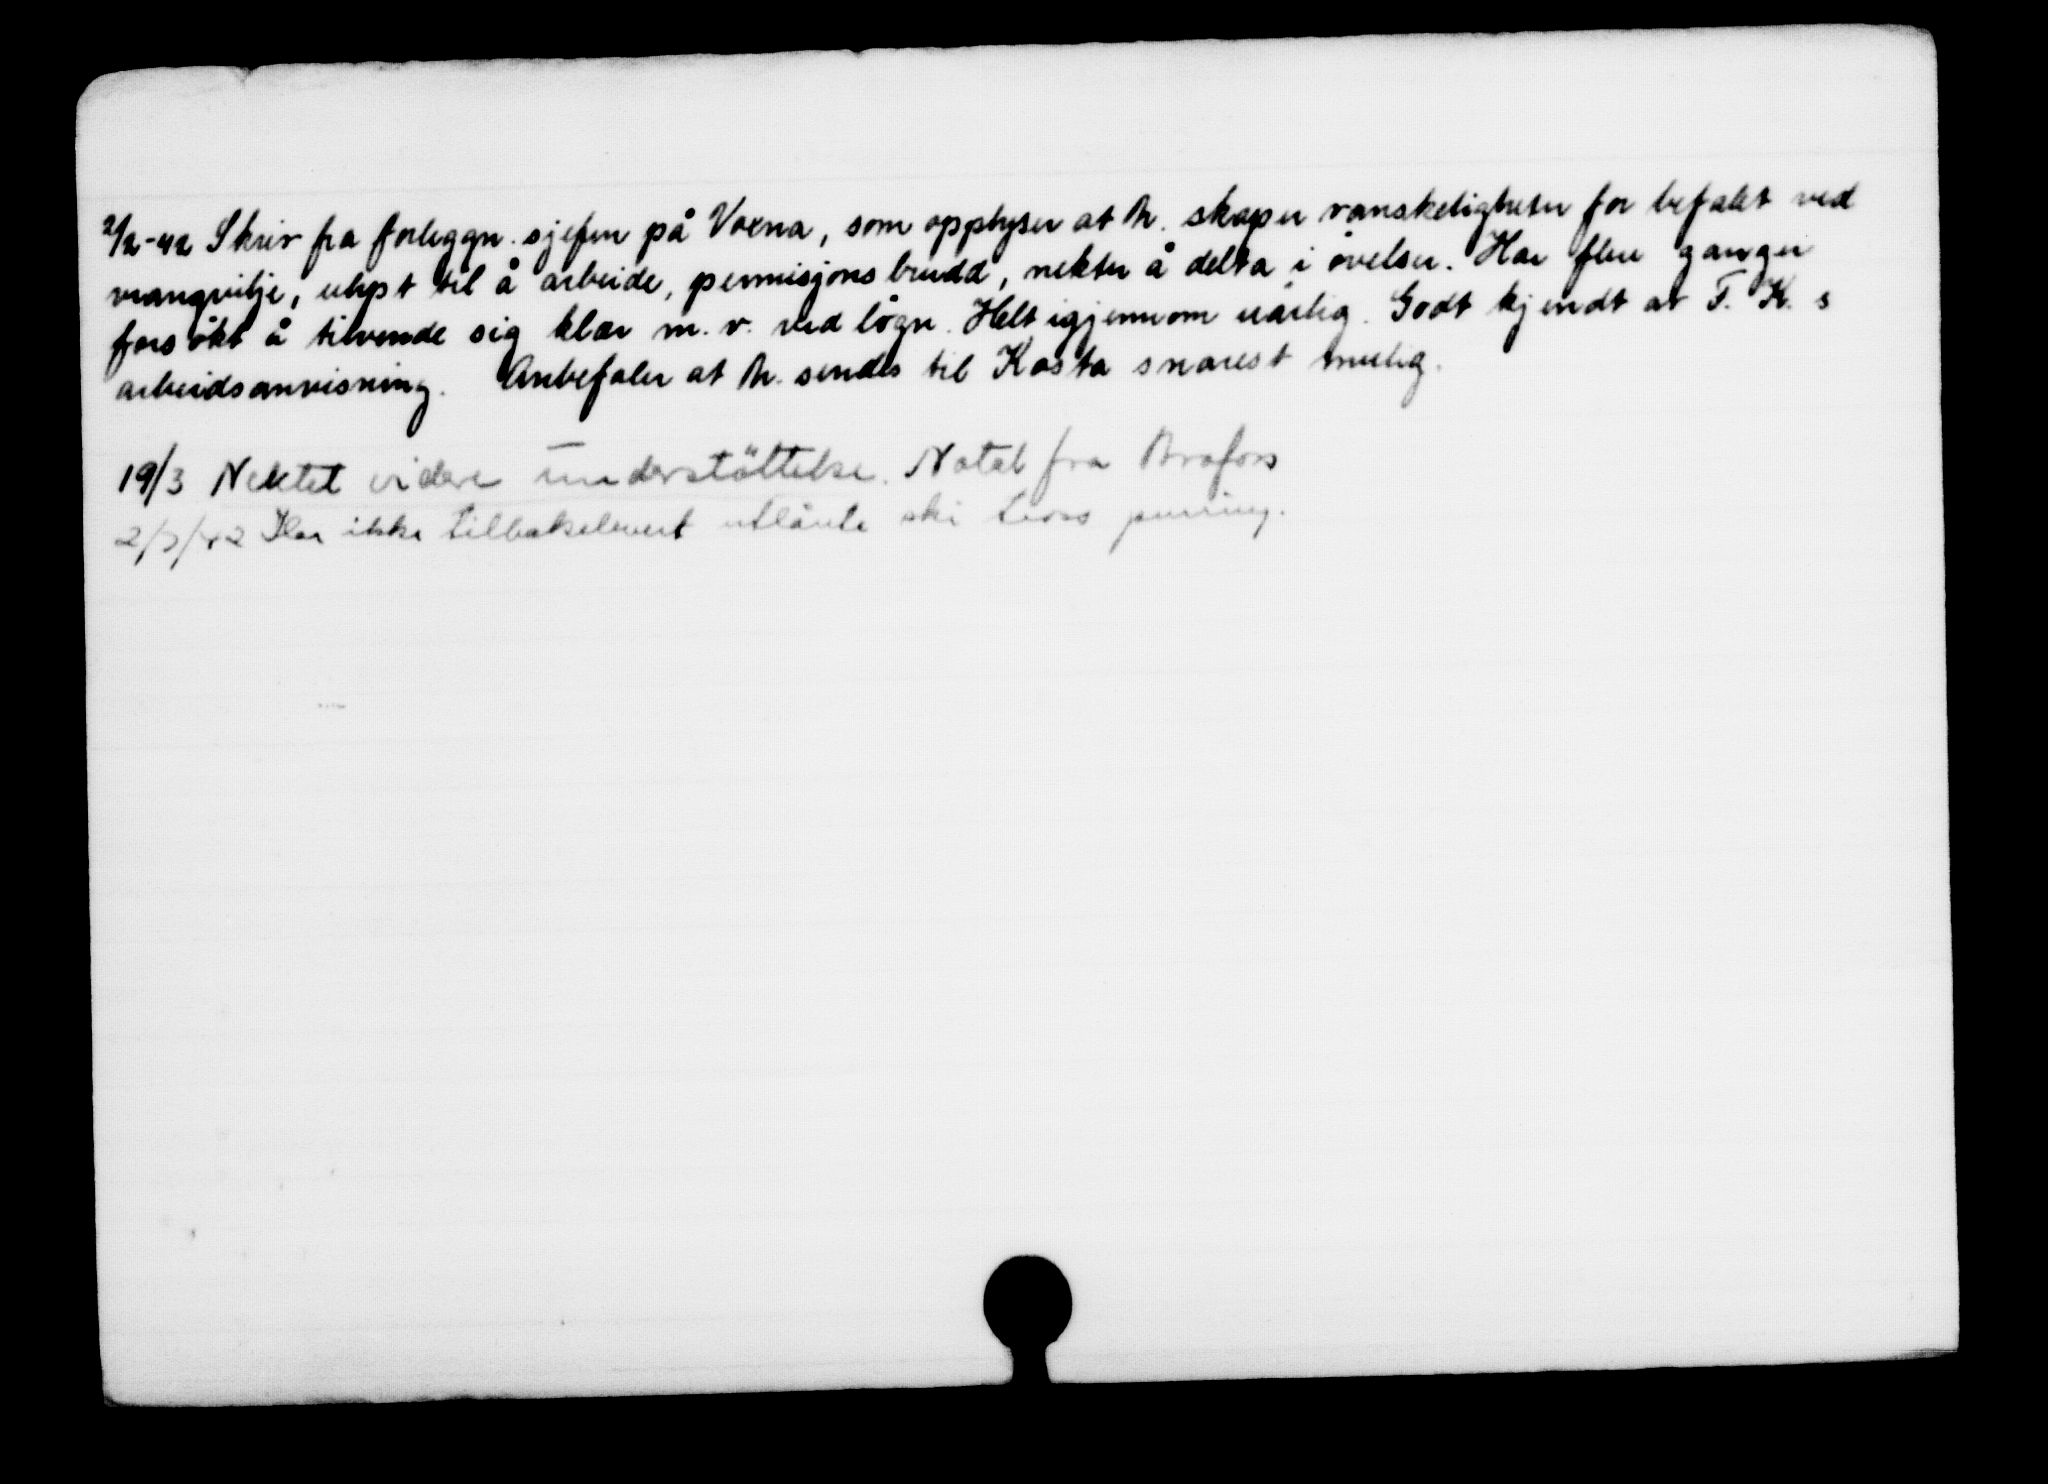 2/2-42 Skriv fra forleggn. sjefen på Voxna, som opplyser at N. skaper vanskeligheter for befalet ved
vrangvilje, ulyst til å arbeide, permisjonsbrudd, nekter å delta i øvelser. Har flere ganger
forsökt å tilvende sig klær m.v. ved lögn. Helt igjennom uärlig. Godt kjendt av F. K. s
arbeidsanvisning. Anbefaler at N. sendes til Kosta snarest mulig.
19/3 Nektet videre understöttelse. Notat fra Brofors
2/7/42 Har ikke tilbakelevert utlånte ski tross purring.